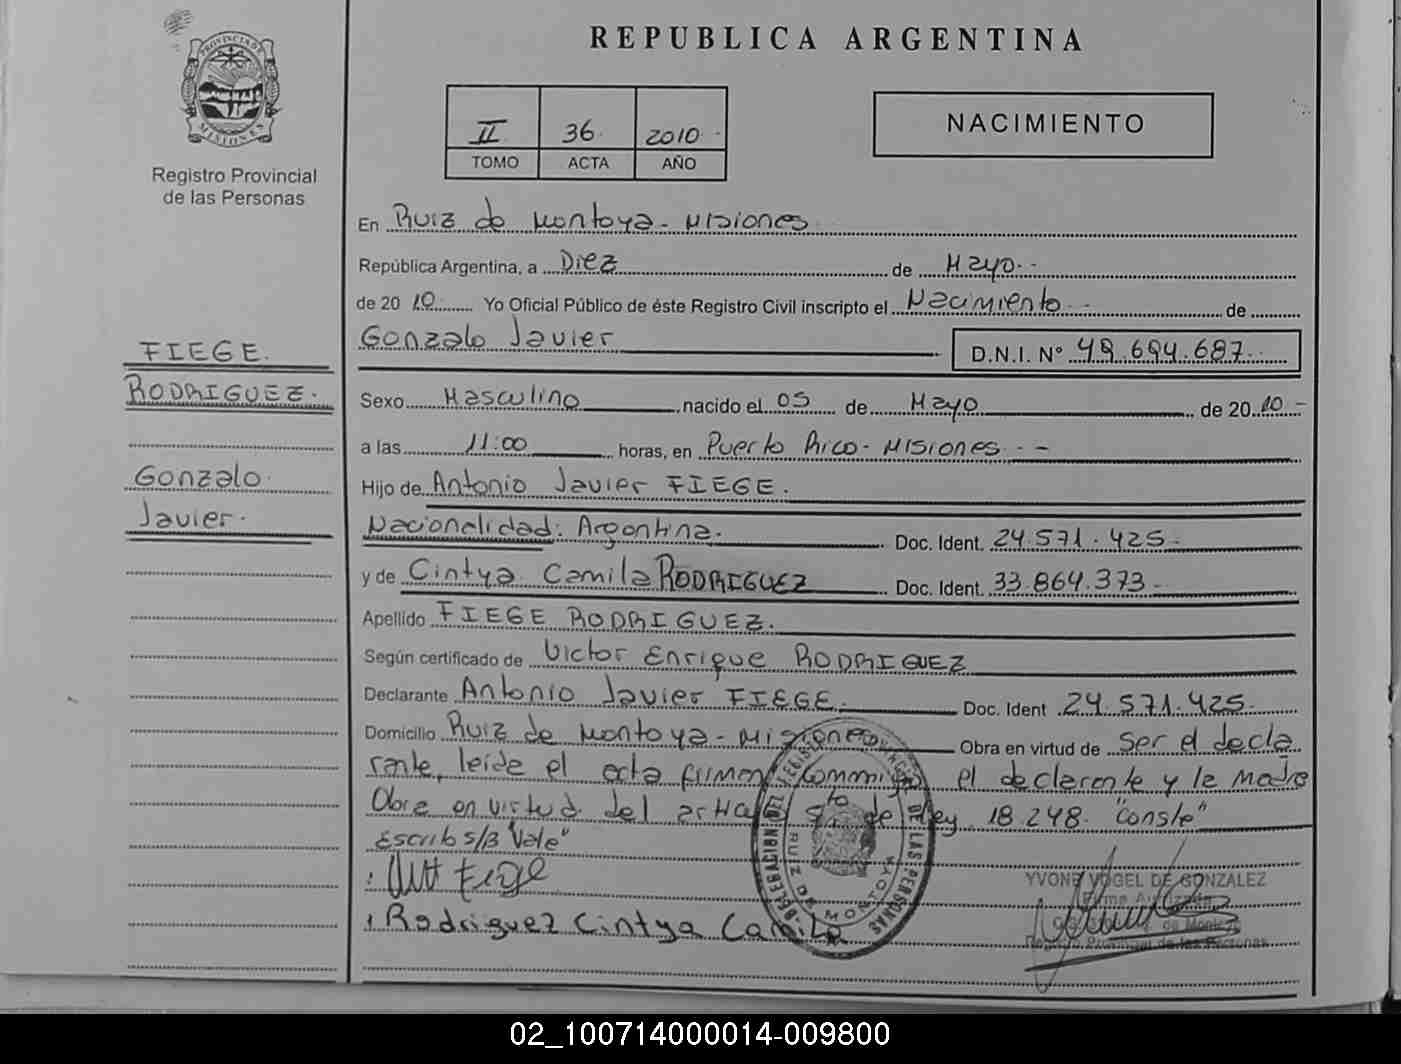 REPUBLICA ARGENTINA
PROVINCIA DE
MISIONES
Registro Provincial
de las Personas
II 36 2010
TOMO ACTA AÑO
NACIMIENTO
En Ruiz de Montoya - Misiones
República Argentina, a Diez de Mayo
de 20 10 Yo Oficial Público de éste Registro Civil inscripto el Nacimiento de
Gonzalo Javier D.N.I. Nº 49.694.687
FIEGE
RODRIGUEZ
Gonzalo
Javier
Sexo Masculino nacido el 05 de Mayo de 20 10
a las 11:00 horas, en Puerto Rico - Misiones
Hijo de Antonio Javier FIEGE
Nacionalidad: Argentina Doc. Ident. 24.571.425
y de Cintya Camila RODRIGUEZ Doc. Ident. 33.864.373
Apellido FIEGE RODRIGUEZ
Según certificado de Victor Enrique RODRIGUEZ
Declarante Antonio Javier FIEGE Doc. Ident 24.571.425
Domicilio Ruiz de Montoya - Misiones Obra en virtud de ser el decla
rante, leida el acta firman conmigo el declarante y la madre
Obra en virtud del de Ley 18.248. "Conste"
Escrib s/B "Vale"
Fiege
Rodriguez Cintya Camila
DELEGACION DEL REGISTRO PROVINCIAL DE LAS PERSONAS
RUIZ DE MONTOYA
YVONE VOGEL DE GONZALEZ
Registro Provincial de las Personas
02_100714000014-009800